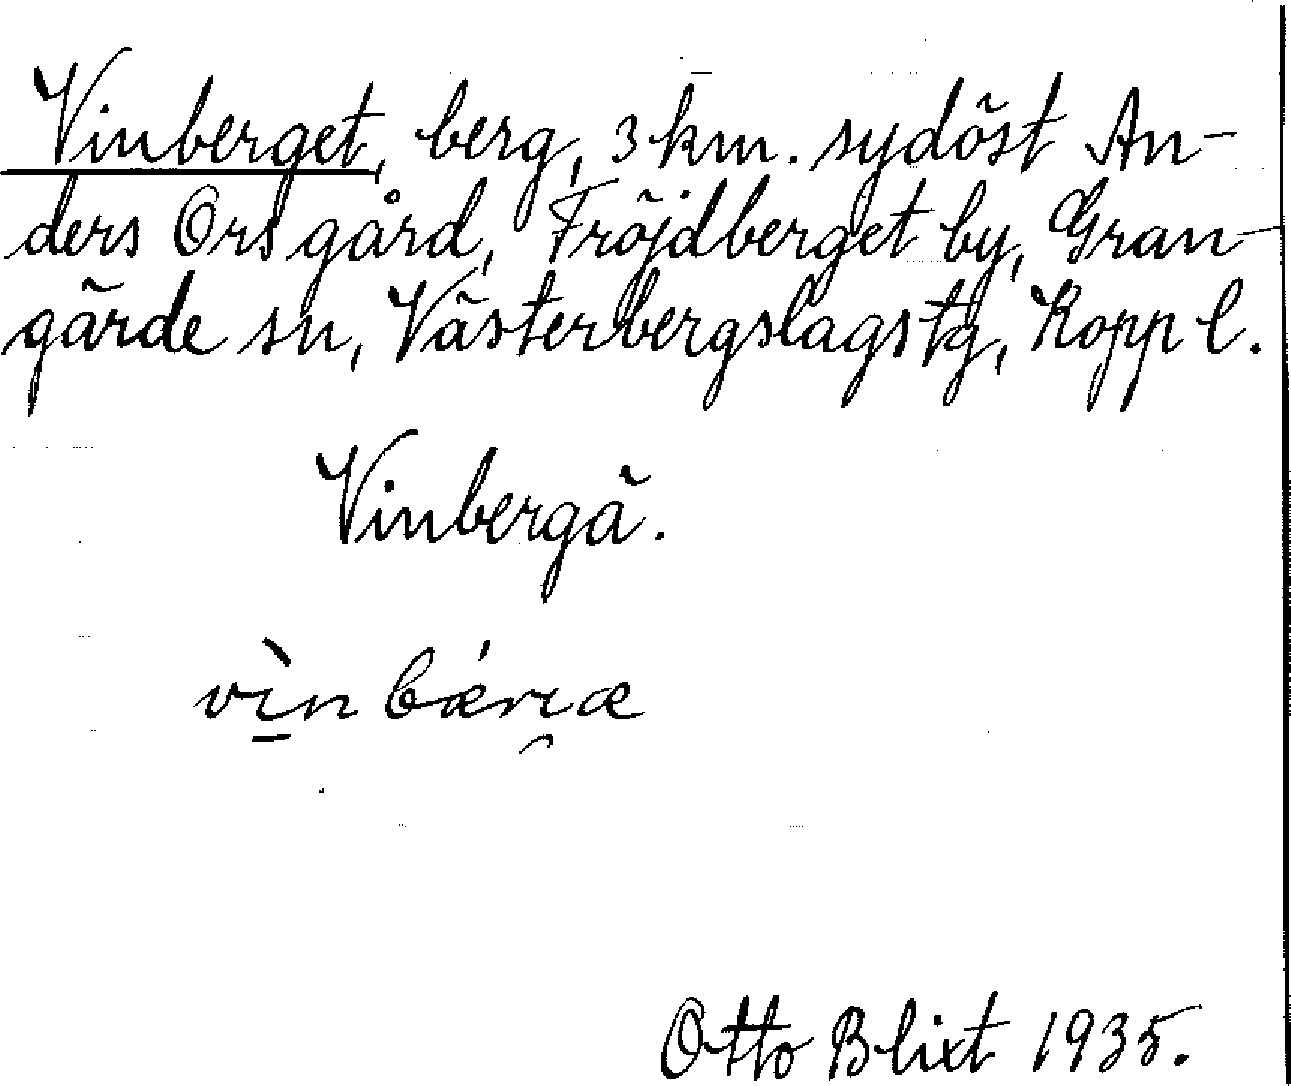 Vinberget, berg, 3 km. sydöst An-
ders Ors gård, Fröjdberget by, Gran-
gärde sn, Västerbergslags tg, Kopp l.
Vinbergä.
vìn bǽrıæ
Otto Blixt 1935.